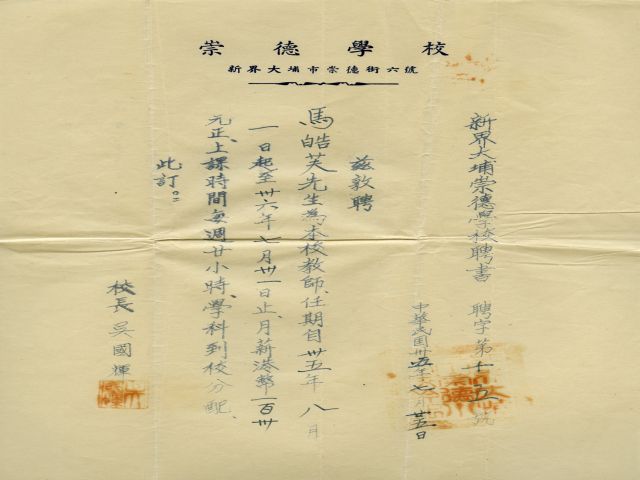 崇德學校
新界大埔市崇德街六號
新界大埔崇德學校聘書 聘字第十五號
中華民国卅五年七月廿五日
茲敦聘
馬皓芙先生為本校教師、任期自卅五年八月
一日起至卅六年七月卅一日止、月薪港幣一百卅
元正、上課時間每週廿小時、學科到校分配、
此訂。
校長 吴國煇